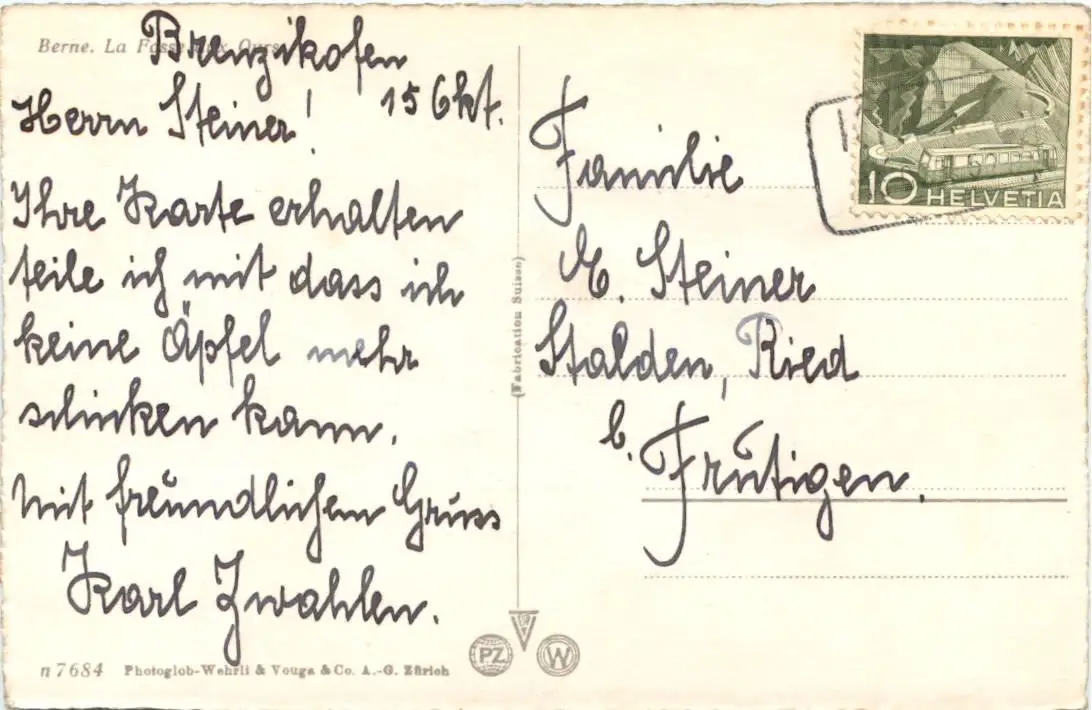 Berne. La Fosse aux Ours
Brenzikofen
15 Okt.
Herrn Steiner!
Ihre Karte erhalten
teile ich mit dass ich
keine Äpfel mehr
schicken kann.
Mit freundlichem Gruss
Karl Zwahlen.
n7684 Photoglob-Wehrli & Vouga & Co. A.-G. Zürich
(Fabrication Suisse)
PZ
W
10 HELVETIA
Familie
E. Steiner
Stalden, Ried
b. Frutigen.